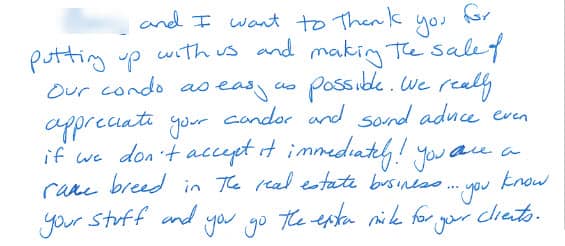 and I want to Thank you for
putting up with us and making The sale of
Our condo as easy as possible. We really
appreciate your candor and sound advice even
if we don't accept it immediately! you are a
rare breed in The real estate business... you know
your stuff and you go the extra mile for your clients.